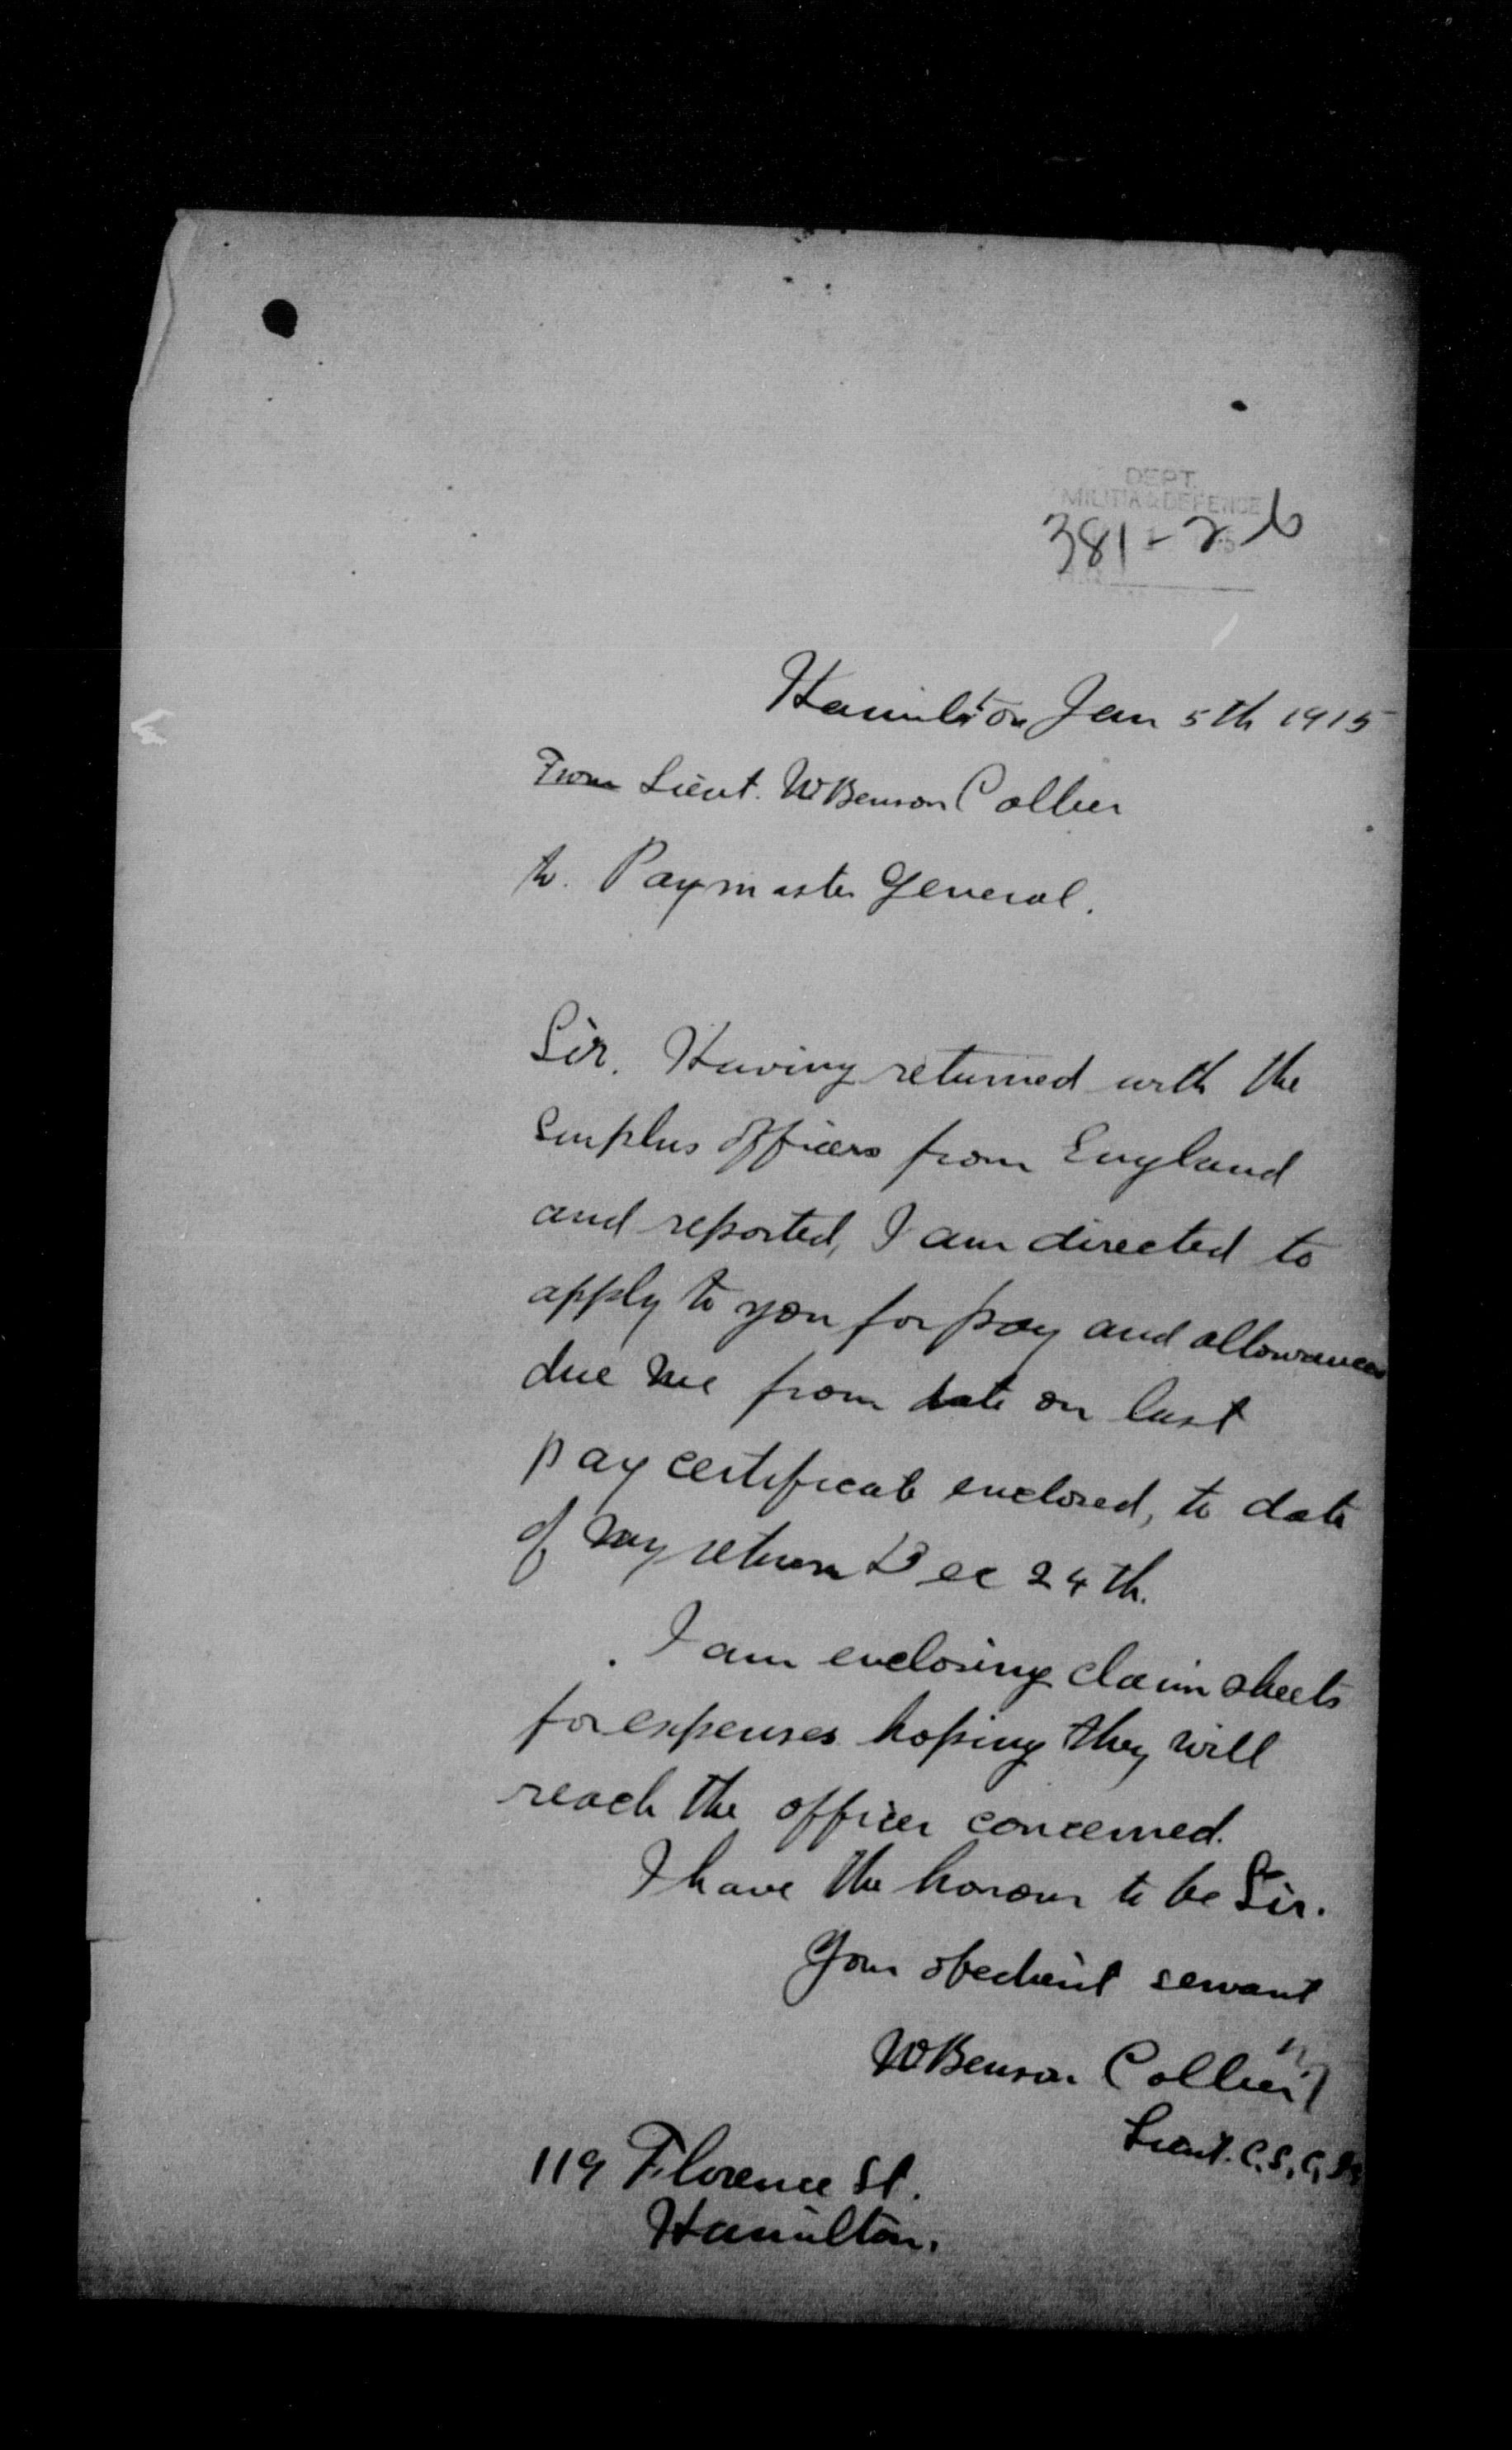 DEPT.
MILITIA & DEFENCE
381-2-6
Hamilton Jan 5th 1915
From Lieut. W Benson Collier
to. Paymaster General.
Sir. Having returned with the
surplus officers from England
and reported, I am directed to
apply to you for pay and allowances
due me from date on last
pay certificate enclosed, to date
of my return Dec 24th.
I am enclosing claim sheets
for expenses hoping they will
reach the officer concerned.
I have the honour to be Sir.
Your obedient servant
W Benson Collier
Lieut. C.S.C.I.
119 Florence St.
Hamilton.